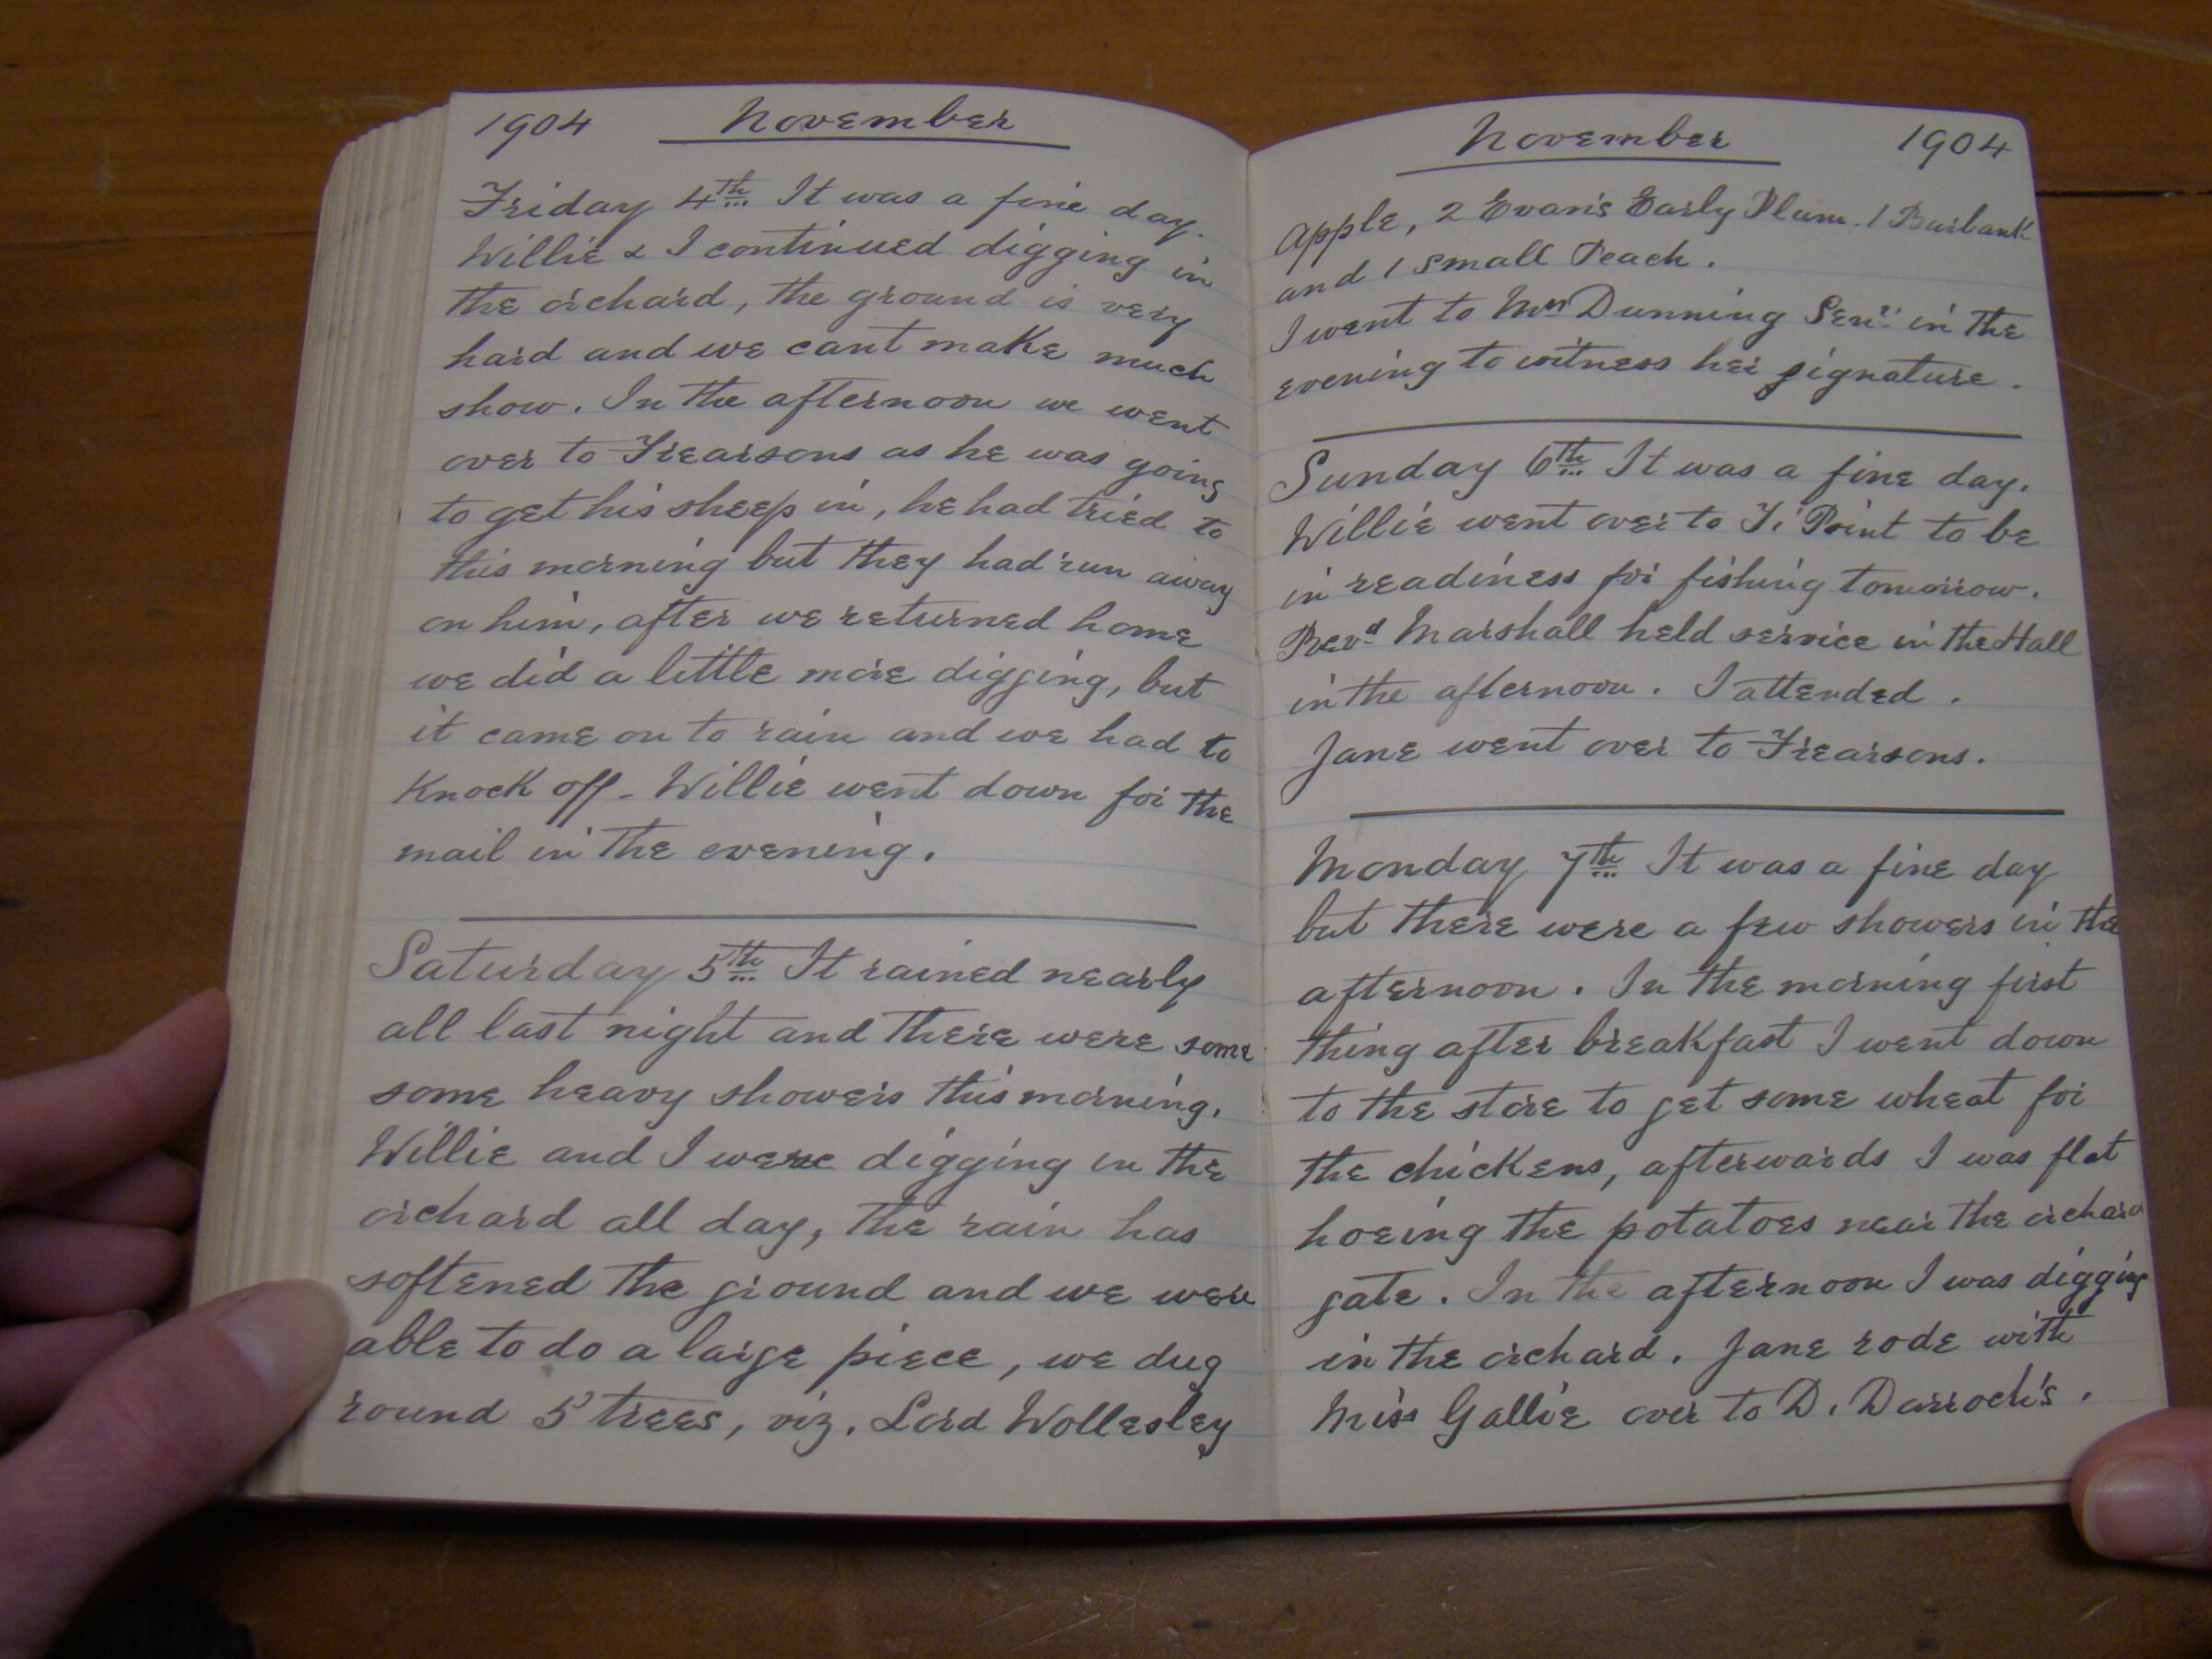 1904 November
Friday 4th It was a fine day.
Willie & I continued digging in
the orchard, the ground is very
hard and we cant make much
show. In the afternoon we went
over to Frearsons as he was going
to get his sheep in, he had tried to
this morning but they had run away
on him, after we returned home
we did a little more digging, but
it came on to rain and we had to
knock off - Willie went down for the
mail in the evening.
Saturday 5th It rained nearly
all last night and there were some
some heavy showers this morning.
Willie and I were digging in the
orchard all day, the rain has
softened the ground and we were
able to do a large piece, we dug
round 5 trees, viz. Lord Wollesley
November 1904
apple, 2 Evan's Early Plum. 1 Burbank
and 1 small Peach.
I went to Mrs Dunning Senr. in the
evening to witness her signature.
Sunday 6th It was a fine day.
Willie went over to Ti Point to be
in readiness for fishing tomorrow.
Revd Marshall held service in the Hall
in the afternoon. I attended.
Jane went over to Frearsons.
Monday 7th It was a fine day
but there were a few showers in the
afternoon. In the morning first
thing after breakfast I went down
to the store to get some wheat for
the chickens, afterwards I was flat
hoeing the potatoes near the orchard
gate. In the afternoon I was digging
in the orchard. Jane rode with
Miss Gallie over to D. Darroch's.